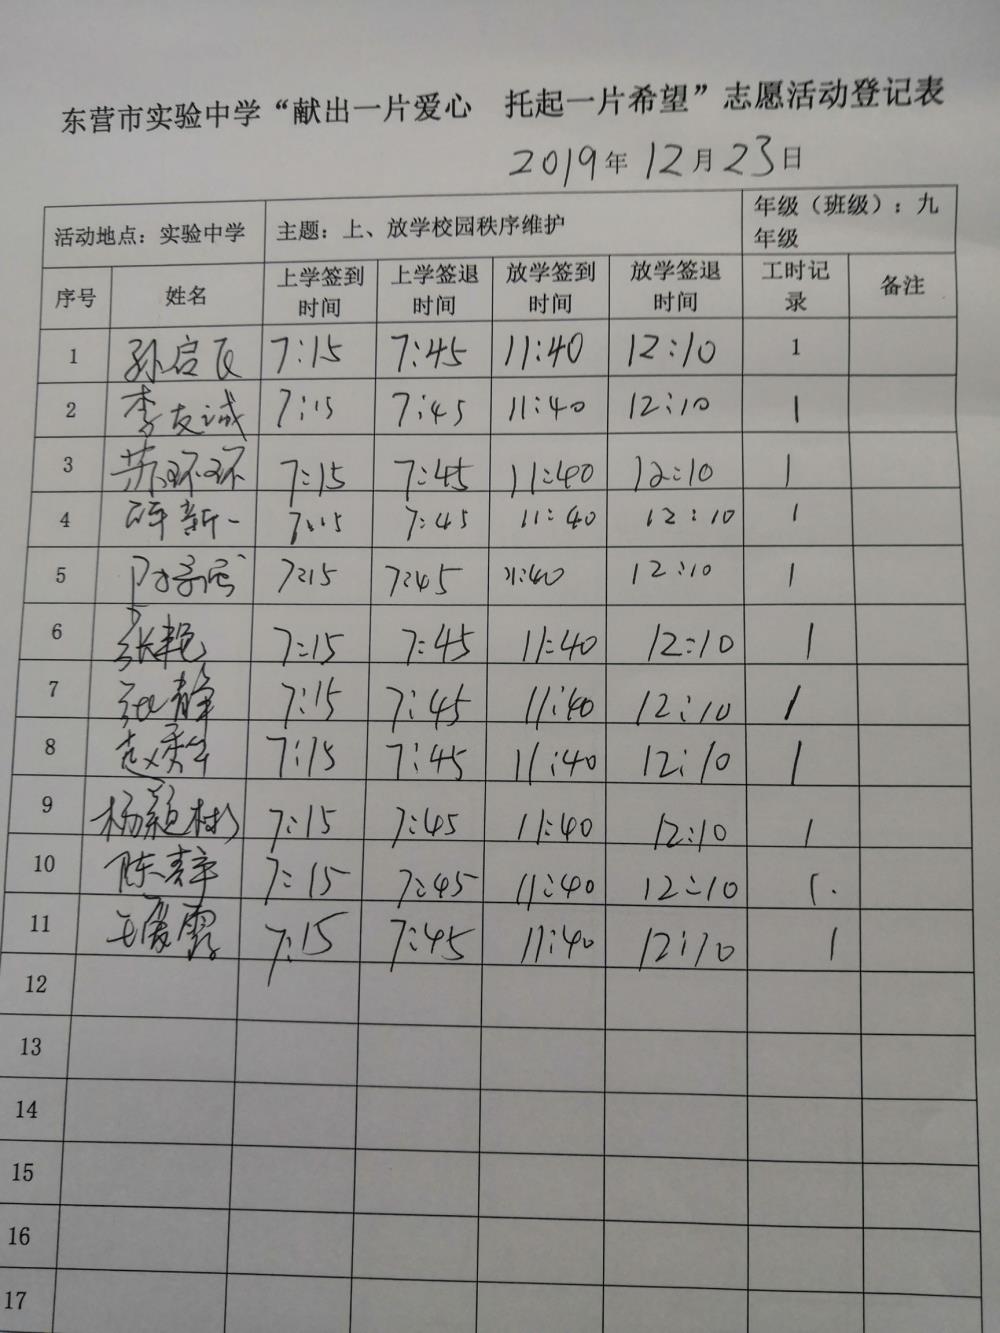 东营市实验中学“献出一片爱心 托起一片希望”志愿活动登记表
2019年12月23日
活动地点：实验中学 主题：上、放学校园秩序维护 年级（班级）：九年级
序号 姓名 上学签到时间 上学签退时间 放学签到时间 放学签退时间 工时记录 备注
1 孙启 7:15 7:45 11:40 12:10 1
2 李友诚 7:15 7:45 11:40 12:10 1
3 苏环环 7:15 7:45 11:40 12:10 1
4 薛新一 7:15 7:45 11:40 12:10 1
5 7:15 7:45 11:40 12:10 1
6 张艳 7:15 7:45 11:40 12:10 1
7 张静 7:15 7:45 11:40 12:10 1
8 赵 7:15 7:45 11:40 12:10 1
9 杨颖彬 7:15 7:45 11:40 12:10 1
10 陈 7:15 7:45 11:40 12:10 1.
11 王 露 7:15 7:45 11:40 12:10 1
12
13
14
15
16
17